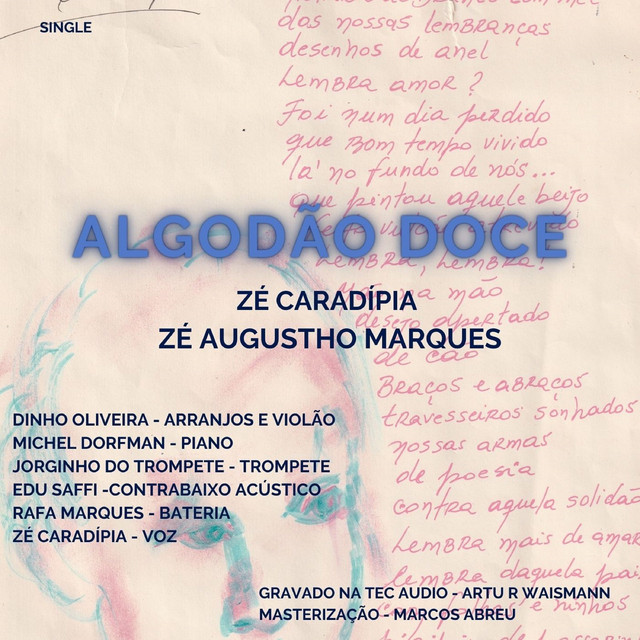 SINGLE
das nossas lembranças
desenhos de anel
Lembra amor?
Foi num dia perdido
que bom tempo vivido
lá no fundo de nós...
que pintou aquele beijo
ALGODÃO DOCE
Lembra, Lembra!
na mão
ZÉ CARADÍPIA
deserto apertado
ZÉ AUGUSTHO MARQUES
de cão
Braços e abraços
travesseiros sonhados
nossas armas
de poesia
contra aquela solidão
Lembra mais de amar
lembra daquela
DINHO OLIVEIRA - ARRANJOS E VIOLÃO
MICHEL DORFMAN - PIANO
JORGINHO DO TROMPETE - TROMPETE
EDU SAFFI -CONTRABAIXO ACÚSTICO
RAFA MARQUES - BATERIA
ZÉ CARADÍPIA - VOZ
GRAVADO NA TEC AUDIO - ARTU R WAISMANN
MASTERIZAÇÃO - MARCOS ABREU